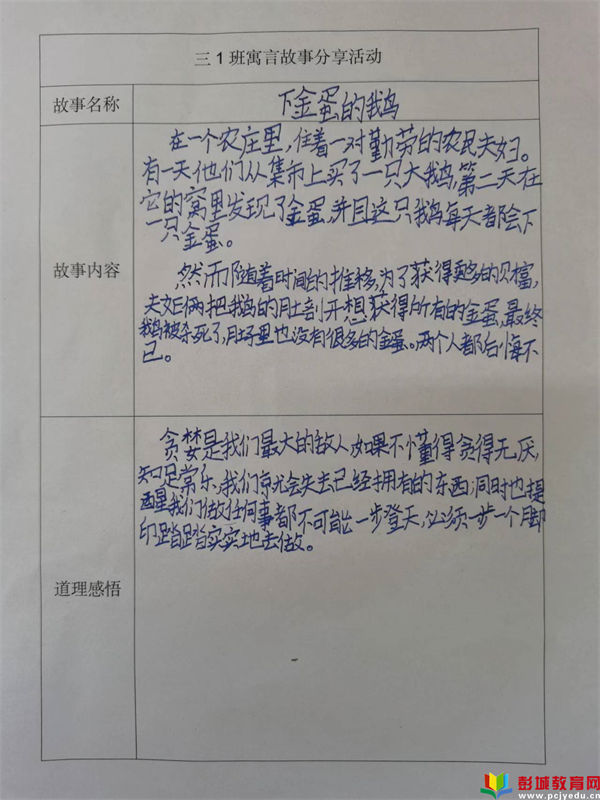 三1班寓言故事分享活动
故事名称
下金蛋的鹅
故事内容
在一个农庄里,住着一对勤劳的农民夫妇。
有一天他们从集市上买了一只大鹅,第二天在
它的窝里发现了金蛋,并且这只鹅每天都会下
一只金蛋。
然而随着时间的推移,为了获得更多的财富,
夫妇俩把鹅的肚剖开想获得所有的金蛋,最终
鹅被杀死了,肚子里也没有很多的金蛋。两个人都后悔不
已。
道理感悟
贪婪是我们最大的敌人,如果不懂得贪得无厌,
知足常乐,我们就会失去已经拥有的东西;同时也提
醒我们做任何事都不可能一步登天,必须一步一个脚
印踏踏实实地去做。
彭城教育网
www.pcjyedu.cn